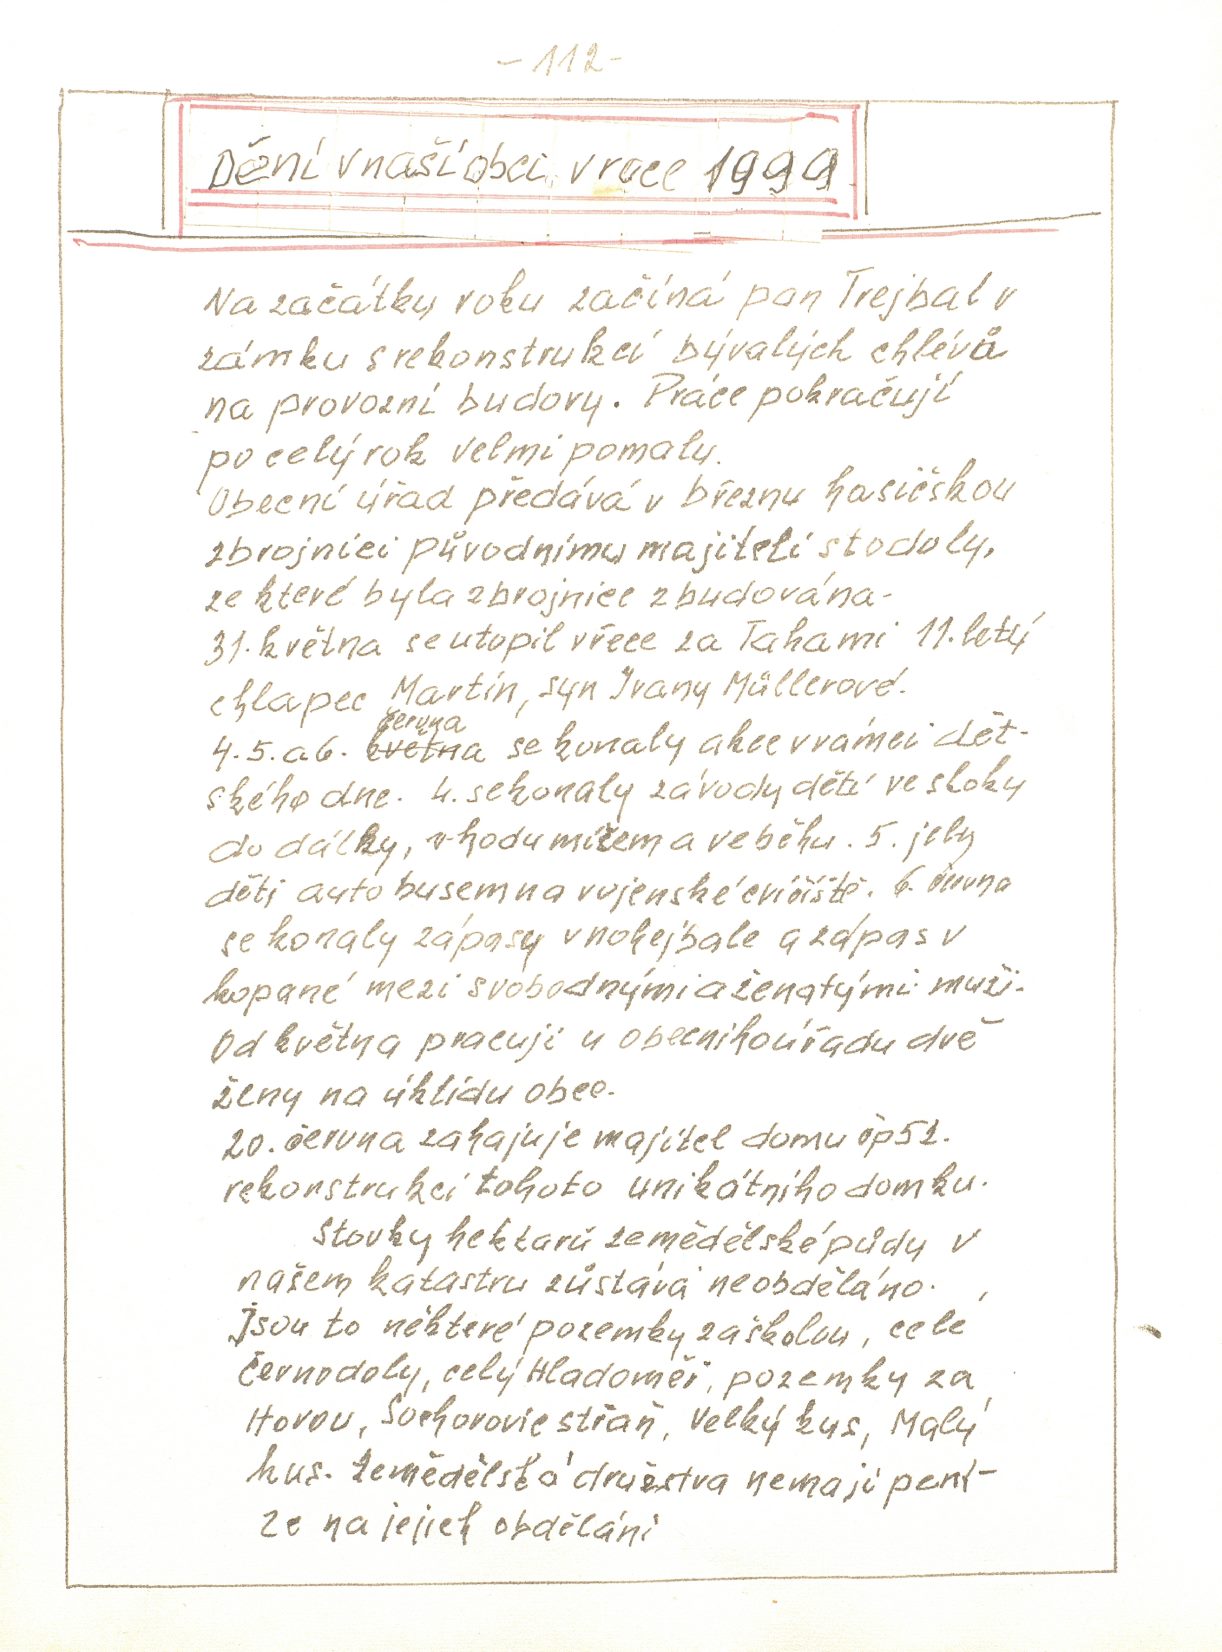 - 112 -
Dění v naší obci v roce 1999
Na začátku roku začíná pan Trejbal v
zámku s rekonstrukcí bývalých chlévů
na provozní budovy. Práce pokračují
po celý rok velmi pomalu.
Obecní úřad předává v březnu hasičskou
zbrojnici původnímu majiteli stodoly,
ze které byla zbrojnice zbudována.
31. května se utopil v řece za Tahami 11. letý
chlapec Martin, syn Ivany Müllerové.
června
4. 5. a 6. května se konaly akce v rámci dět-
ského dne. 4. se konaly závody dětí ve skoku
do dálky, v hodu míčem a v běhu. 5. jely
děti autobusem na vojenské cvičiště. 6. června
se konaly zápasy v nohejbale a zápas v
kopané mezi svobodnými a ženatými muži.
Od května pracují u obecního úřadu dvě
ženy na úklidu obce.
20. června zahajuje majitel domu čp 52.
rekonstrukci tohoto unikátního domku.
Stovky hektarů zemědělské půdy v
našem katastru zůstává neobděláno.
Jsou to některé pozemky za školou, celé
Černodoly, celý Hladoměř, pozemky za
Horou, Sochorovic stráň, Velký kus, Malý
kus. Zemědělská družstva nemají pení-
ze na jejich obdělání